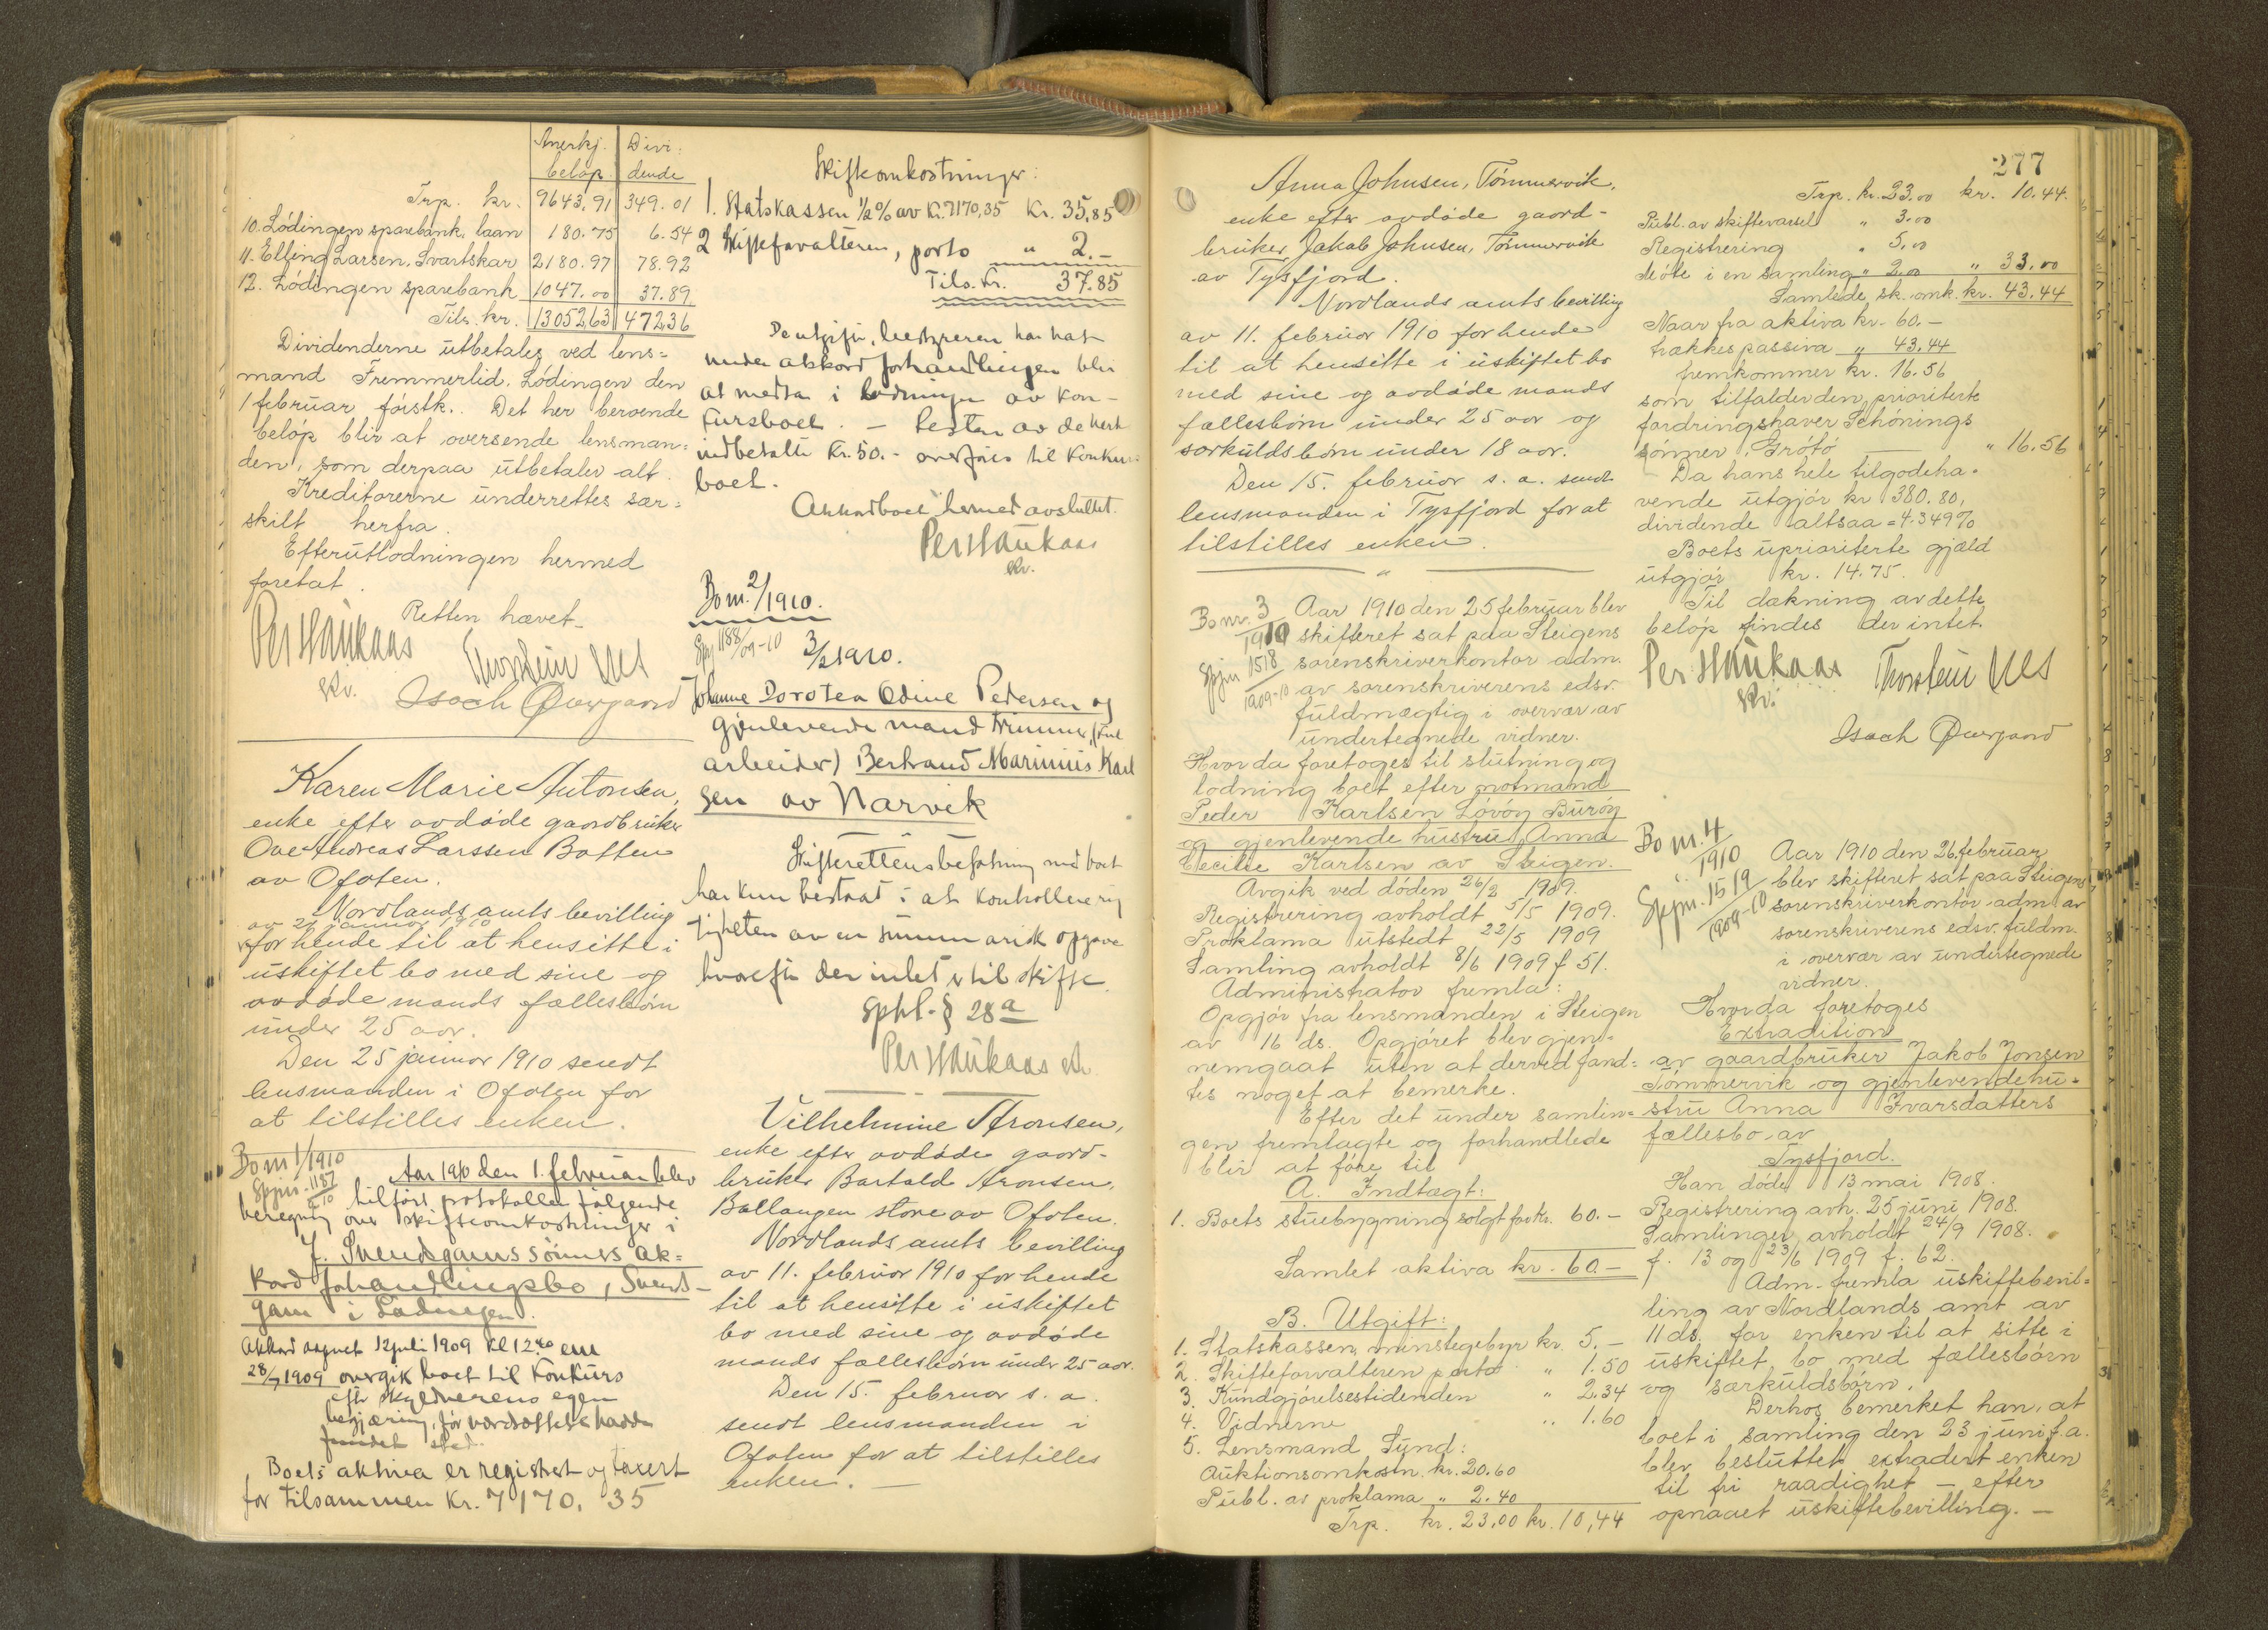 Anerkj. Divi:
beløp. dende
Trp. kr. 9643,91 349.01
10. Lödingen sparebank, laan 180.75 6.54
11. Elling Larsen, Svartskar 2180.97 78.92
12. Lödingen sparebank 1047.00 37.89
Tils. kr. 13052,63 472,36
Dividenderne utbetales ved lens=
mand Fremmerlid, Lödingen den
1 februar förstk.. Det her beroende
beløp blir at oversende lensman=
den, som derpaa utbetaler alt.
Kreditorerne underrettes sær=
skilt herfra.
Efterutlodningen hermed
foretat.
Retten hævet.
Per Haukaas
skr.
Thorstein
Isach Øvergaard
Karen Marie Antonsen,
enke efter avdøde gaardbruker
Ove Andreas Larssen Botten
av Ofoten.
Nordlands amts bevilling
av 21 januar 1910
for hende til at hensitte i
uskiftet bo med sine og
avdøde mands fællesbörn
under 25 aar.
Den 25 januar 1910 sendt
lensmanden i Ofoten for
at tilstilles enken.
Bo nr 1/1910
Spjnr. 1187
Aar 1910 den 1. februar blev
tilført protokollen følgende
beregning over skifteomkostninger i
J. Svendsgams sønners ak=
kordforhandlingsbo, Svends-
gam i Lødingen.
Akkord aapnet 12 juli 1909 kl 12 em
28/7 1909 overgik boet til konkurs
efter skyldnerens egen
begjæring, før
fundet sted.
Boets aktiva er registrert og taxert
for tilsammen kr. 7170,35
Skifteomkostninger:
1. Statskassen ½ % av kr. 7170,35 kr. 35,85
2 Skifteforvalteren, porto " 2.-
Tils. kr. 37.85
De utgifter, bestyreren har hat
under akkordforhandlingen blir
at medta i lodningen av kon-
kursboet. - Resten av de hert
indbetalte kr. 50.- overføres til konkurs
boet.
Akkordboet hermed avsluttet.
Per Haukaas
skr.
Bo nr. 2/1910.
Spj 1188/09-10
3/2 1910.
Johanne Dorotea Odine Pedersen og
gjenlevende mand
arbeider) Bertrand Marinius Karl
sen av Narvik
Skifterettens befatning med boet
har kun bestaat i at kontrollere rig
tigheten av en summarisk opgave
hvorefter der intet er til skifte.
Sphl. § 28a
Per Haukaas skr.
Vilhelmine Aronsen,
enke efter avdøde gaard-
bruker Bartald Aronsen,
Ballangen store av Ofoten.
Nordlands amts bevilling
av 11. februar 1910 for hende
til at hensitte i uskiftet
bo med sine og avdøde
mands fællesbörn under 25 aar.
Den 15. februar s. a.
sendt lensmanden i
Ofoten for at tilstilles
enken. -
277
Anna Johnsen, Tömmervik,
enke efter avdøde gaard-
bruker Jakob Johnsen, Tömmervik
av Tysfjord.
Nordlands amts bevilling
av 11. februar 1910 for hende
til at hensitte i uskiftet bo
med sine og avdøde mands
fællesbörn under 25 aar og
særkuldsbörn under 18 aar.
Den 15. februar s. a. sendt
lensmanden i Tysfjord for at
tilstilles enken.
Bo nr. 3
1910
Spjnr 1518
1909-10
Aar 1910 den 25 februar blev
skifteret sat paa Steigens
sorenskriverkontor adm.
av sorenskriverens edsv.
fuldmægtig i overvær av
undertegnede vidner.
Hvor da foretoges til slutning og
lodning boet efter notmand
Peder Karlsen Lövöy Buröy
og gjenlevende hustru Anna
Cecilie Karlsen av Steigen.
Avgik ved döden 26/2 1909.
Registrering avholdt 5/5 1909.
Proklama utstedt 22/5 1909
Samling avholdt 8/6 1909 f 51.
Administrator fremla:
Opgjör fra lensmanden i Steigen
av 16 ds. Opgjöret blev gjen-
nemgaat uten at derved fand=
tes noget at bemerke.
Efter det under samlin=
gen fremlagte og forhandlede
blir at före til
A. Indtægt:
1. Boets stuebygning solgt for kr. 60.-
Samlet aktiva kr. 60.-
B. Utgift:
1. Statskassen, minstegebyr kr. 5.-
2. Skifteforvalteren porto " 1.50
3. Kundgjörelsestidenden " 2,34
4. Vidnerne " 1.60
5. Lensmand Sund:
Auktionsomkostn. kr. 20.60
Publ. av proklama " 2.40
Trp. kr. 23,00 kr. 10,44
Trp. kr. 23.00 kr. 10.44.
Publ. av skiftevarsel " 3.00
Registrering " 5,00
Möte i en samling " 2,00 " 33.00
Samlede sk. omk. kr. 43.44
Naar fra aktiva kr. 60.-
trækkes passiva " 43.44
fremkommer kr. 16.56
som tilfalder den prioriterte
fordringshaver Schönings
sönner, Grötö " 16.56
Da hans hele tilgodeha-
vende utgjör kr 380.80,
dividende altsaa = 4.349%
Boets uprioriterte gjæld
utgjör kr. 14.75.
Til dækning av dette
belöp findes der intet.
Per Haukaas
skr.
Thorstein
Isach Øvergaard
Bo nr. 4
1910
Spjnr. 1519
1909-10
Aar 1910 den 26. februar
blev skifteret sat paa Steigens
sorenskriverkontor adm. av
sorenskriverens edsv. fuldm.
i overvær av undertegnede
vidner.
Hvor da foretoges
Extradition
av gaardbruker Jakob Jonsen
Tömmervik og gjenlevende hu-
stru Anna Ivarsdatters
fællesbo av
Tysfjord.
Han döde 13 mai 1908.
Registrering avh. 25 juni 1908.
Samlinger avholdt 24/9 1908.
f. 13 og 23/6 1909 f. 62.
Adm. fremla uskiftebevil=
ling av Nordlands amt av
11 ds. for enken til at sitte i
uskiftet bo med fællesbörn
og særkuldsbörn.
Derhos bemerket han, at
boet i samling den 23 juni f.a.
blev besluttet extradert enken
til fri raadighet - efter
opnaaet uskiftebevilling. -